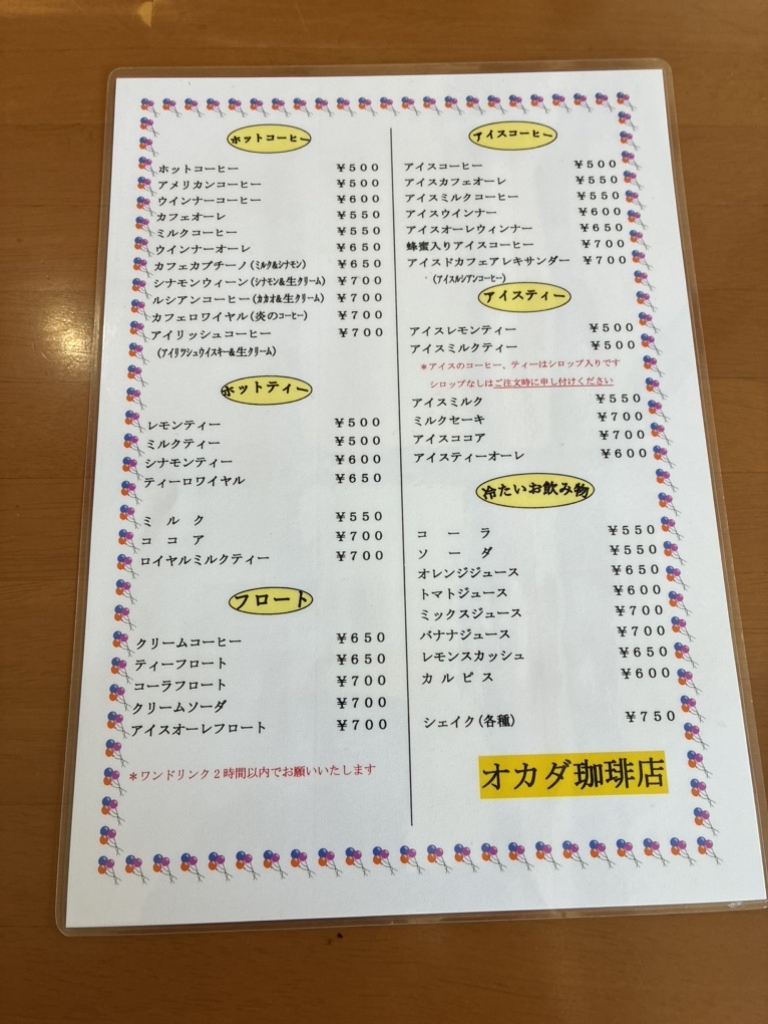 ホットコーヒー
ホットコーヒー ￥５００
アメリカンコーヒー ￥５００
ウインナーコーヒー ￥６００
カフェオーレ ￥５５０
ミルクコーヒー ￥５５０
ウインナーオーレ ￥６５０
カフェカプチーノ(ミルク&シナモン) ￥６５０
シナモンウィーン(シナモン&生クリーム) ￥７００
ルシアンコーヒー(カカオ&生クリーム) ￥７００
カフェロワイヤル(炎のコーヒー) ￥７００
アイリッシュコーヒー ￥７００
(アイリッシュウイスキー&生クリーム)
ホットティー
レモンティー ￥５００
ミルクティー ￥５００
シナモンティー ￥６００
ティーロワイヤル ￥６５０
ミ ル ク ￥５５０
コ コ ア ￥７００
ロイヤルミルクティー ￥７００
フロート
クリームコーヒー ￥６５０
ティーフロート ￥６５０
コーラフロート ￥７００
クリームソーダ ￥７００
アイスオーレフロート ￥７００
＊ワンドリンク２時間以内でお願いいたします
アイスコーヒー
アイスコーヒー ￥５００
アイスカフェオーレ ￥５５０
アイスミルクコーヒー ￥５５０
アイスウインナー ￥６００
アイスオーレウィンナー ￥６５０
蜂蜜入りアイスコーヒー ￥７００
アイスドカフェアレキサンダー ￥７００
(アイスルシアンコーヒー)
アイスティー
アイスレモンティー ￥５００
アイスミルクティー ￥５００
＊アイスのコーヒー、ティーはシロップ入りです
シロップなしはご注文時に申し付けください
アイスミルク ￥５５０
ミルクセーキ ￥７００
アイスココア ￥７００
アイスティーオーレ ￥６００
冷たいお飲み物
コ ー ラ ￥５５０
ソ ー ダ ￥５５０
オレンジジュース ￥６５０
トマトジュース ￥６００
ミックスジュース ￥７００
バナナジュース ￥７００
レモンスカッシュ ￥６５０
カ ル ピ ス ￥６００
シェイク(各種) ￥７５０
オカダ珈琲店